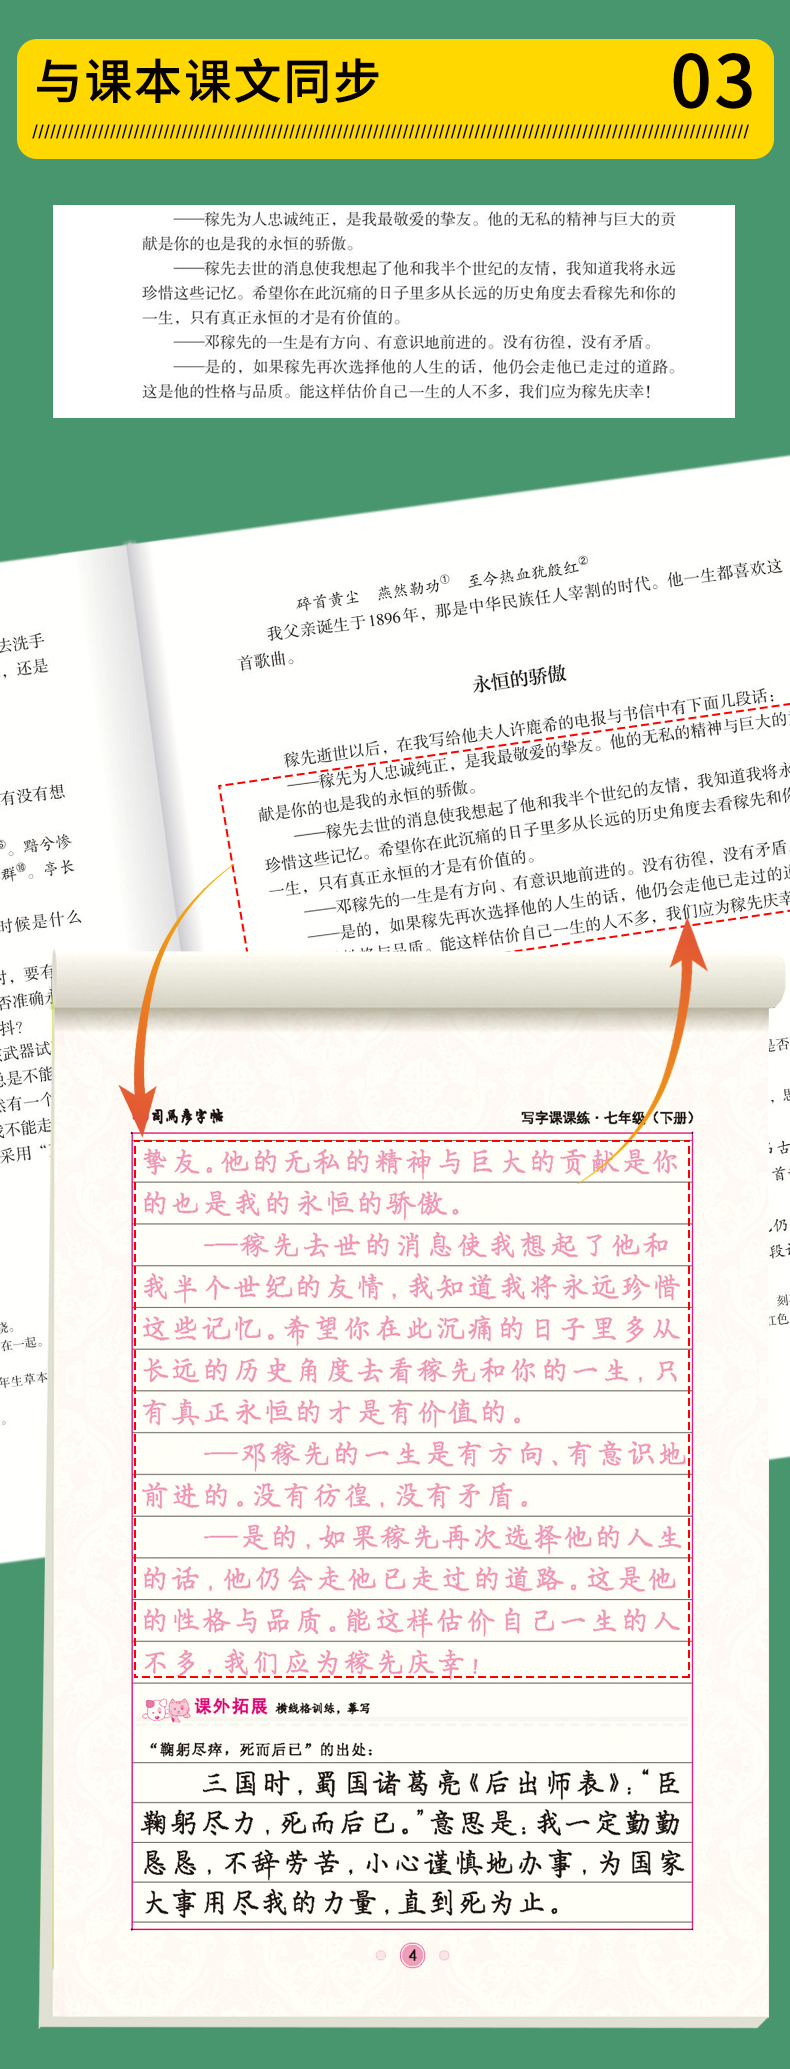 与课本课文同步
03
——稼先为人忠诚纯正，是我最敬爱的挚友。他的无私的精神与巨大的贡
献是你的也是我的永恒的骄傲。
——稼先去世的消息使我想起了他和我半个世纪的友情，我知道我将永远
珍惜这些记忆。希望你在此沉痛的日子里多从长远的历史角度去看稼先和你的
一生，只有真正永恒的才是有价值的。
——邓稼先的一生是有方向、有意识地前进的。没有彷徨，没有矛盾。
——是的，如果稼先再次选择他的人生的话，他仍会走他已走过的道路。
这是他的性格与品质。能这样估价自己一生的人不多，我们应为稼先庆幸！
去洗手
，还是
有没有想
。黯兮惨
群⑱。亭长
时候是什么
时，要有
否准确
抖？
武器试
总是不能
然有一个
我不能走
采用“
碎首黄尘　燕然勒功①　至今热血犹殷红②
我父亲诞生于1896年，那是中华民族任人宰割的时代。他一生都喜欢这
首歌曲。
永恒的骄傲
稼先逝世以后，在我写给他夫人许鹿希的电报与书信中有下面几段话：
——稼先为人忠诚纯正，是我最敬爱的挚友。他的无私的精神与巨大的
献是你的也是我的永恒的骄傲。
——稼先去世的消息使我想起了他和我半个世纪的友情，我知道我将永
珍惜这些记忆。希望你在此沉痛的日子里多从长远的历史角度去看稼先和你
一生，只有真正永恒的才是有价值的。
——邓稼先的一生是有方向、有意识地前进的。没有彷徨，没有矛盾
——是的，如果稼先再次选择他的人生的话，他仍会走他已走过的道
性格与品质。能这样估价自己一生的人不多，我们应为稼先庆幸
在一起。
年生草本
是否
，思
古
首
仍
段
刻
红色
司马彦字帖
写字课课练·七年级（下册）
挚友。他的无私的精神与巨大的贡献是你
的也是我的永恒的骄傲。
——稼先去世的消息使我想起了他和
我半个世纪的友情，我知道我将永远珍惜
这些记忆。希望你在此沉痛的日子里多从
长远的历史角度去看稼先和你的一生，只
有真正永恒的才是有价值的。
——邓稼先的一生是有方向、有意识地
前进的。没有彷徨，没有矛盾。
——是的，如果稼先再次选择他的人生
的话，他仍会走他已走过的道路。这是他
的性格与品质。能这样估价自己一生的人
不多，我们应为稼先庆幸！
课外拓展 横线格训练，摹写
“鞠躬尽瘁，死而后已”的出处：
三国时，蜀国诸葛亮《后出师表》：“臣
鞠躬尽力，死而后已。”意思是：我一定勤勤
恳恳，不辞劳苦，小心谨慎地办事，为国家
大事用尽我的力量，直到死为止。
4